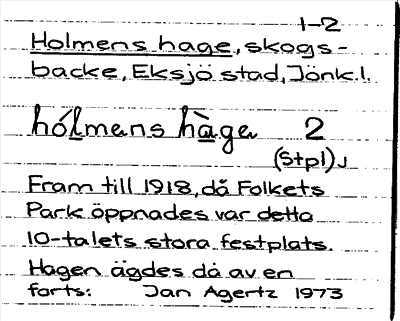 1-2
Holmens hage, skogs-
backe, Eksjö stad, Jönk.l.
hólmens hàgen 2
(Stpl)
Fram till 1918, då Folkets
Park öppnades var detta
10-talets stora festplats.
Hagen ägdes då av en
forts: Jan Agertz 1973